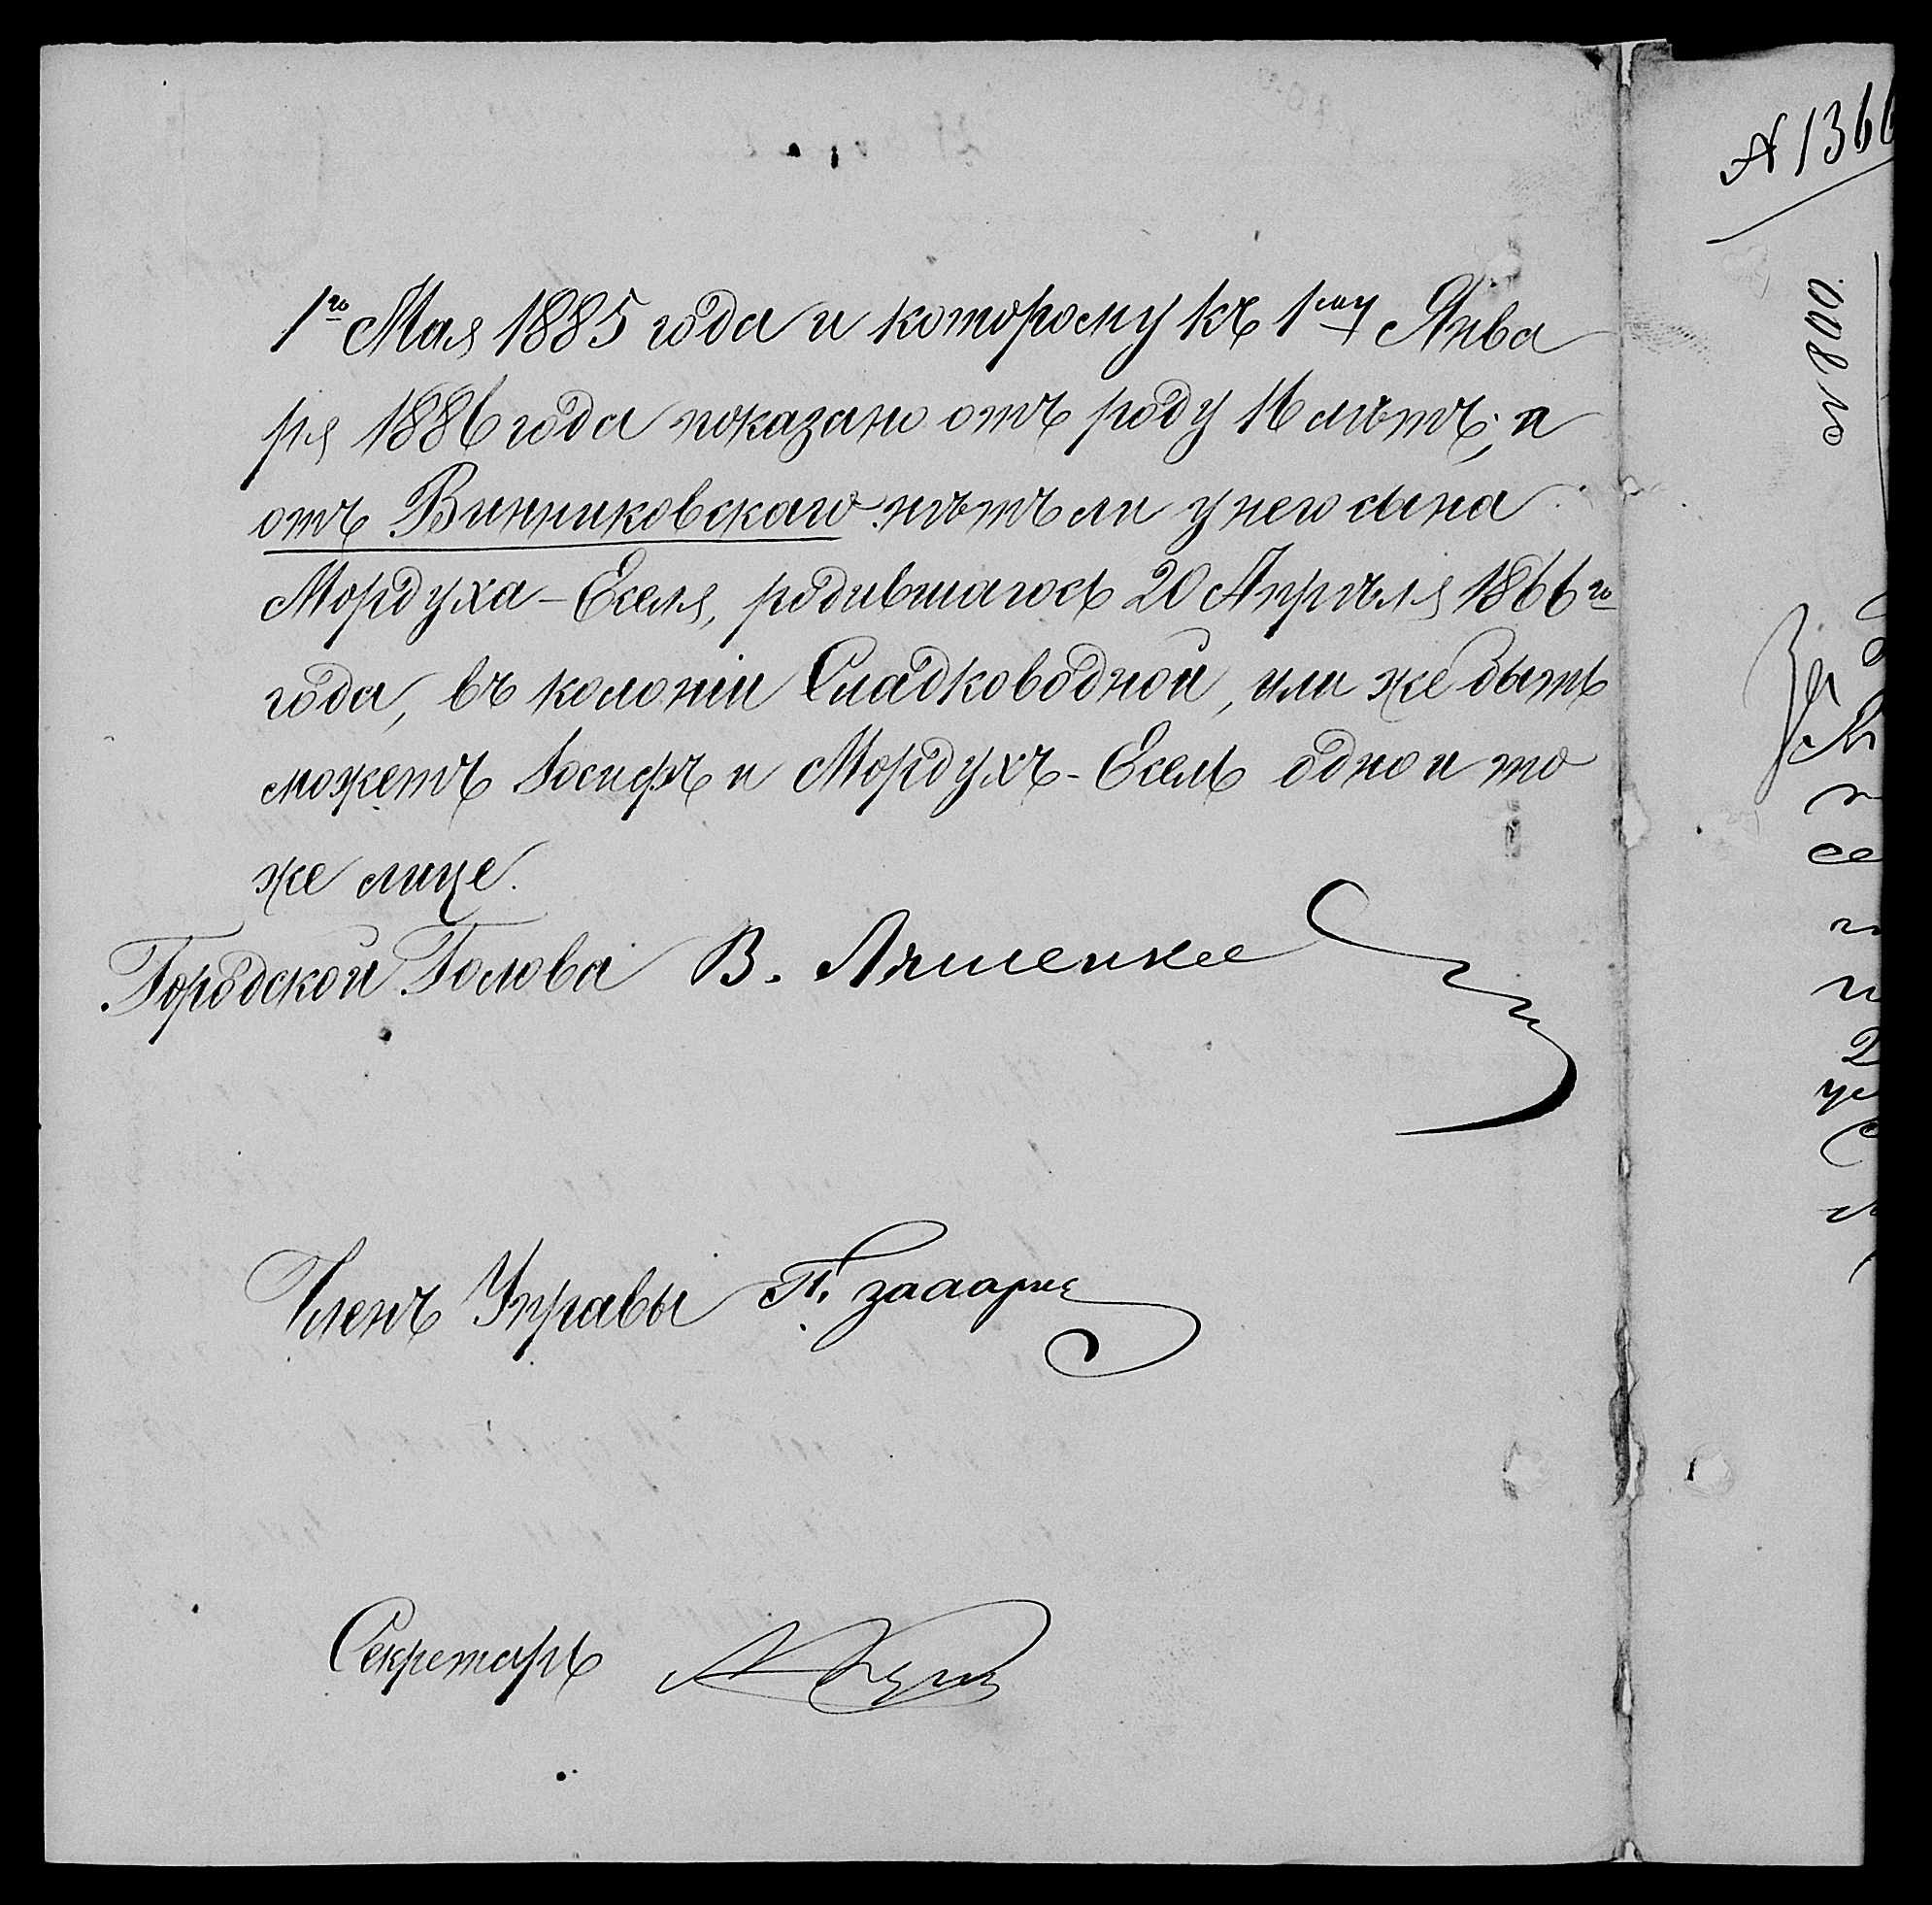 1го Мая 1885 года и которому къ 1му Янва
ря 1886 года показано отъ роду 16 лѣтъ; и
отъ Винниковскаго нѣтъ ли у него сына
Мордуха-Еселя, родившагось 20 Апрѣля 1866го
года, въ колоніи Сладководной, или же быть
можетъ Іосифъ и Мордухъ-Есель одно и то
же лице.
Городской Голова В. Ляшенко
Членъ Управы П.
Секретарь
№ 1366